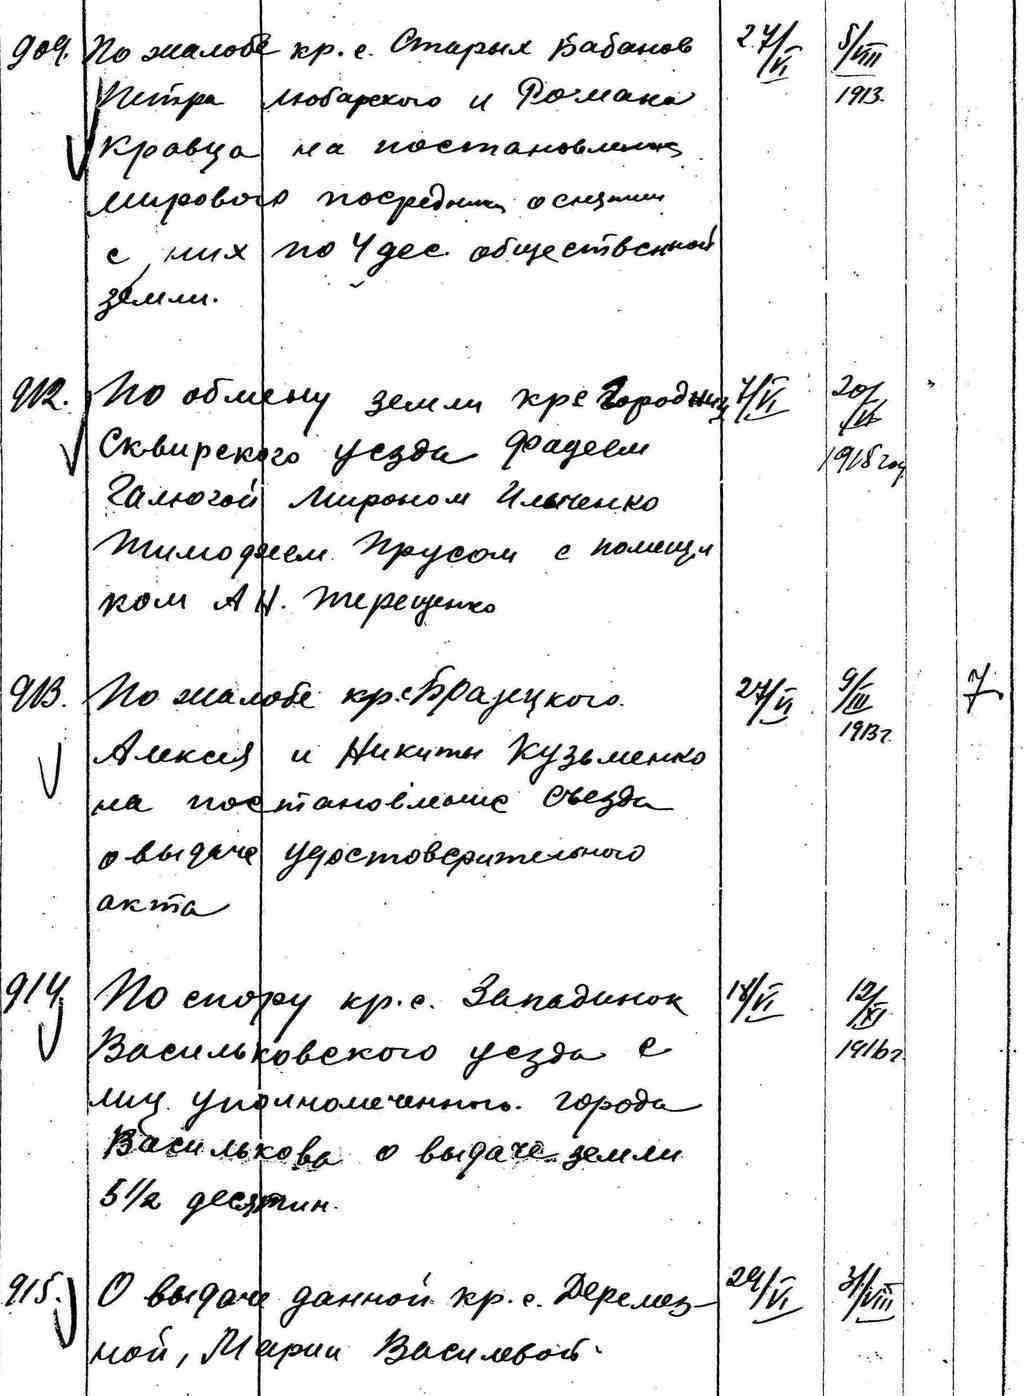 909. По жалобе кр. с. Старых Бабанов 27/VI 5/VIII
Петра Любарского и Романа 1913.
Кравца на постановление
мирового посредника о снятии
с них по 4 дес. общественной
земли.
912. По обмену земли кр с Городищ 7/VI 20/
Сквирского уезда Фадеем 1915 год
Галюгой Мироном Ильченко
Тимофеем Прусом с помещи
ком А Н. Терещенко
913. По жалобе кр. с. 27/VI 9/III 7
Алексея и Никиты Кузьменко 1913 г.
на постановление съезда
о выдаче удостоверительного
акта
914. По спору кр. с. Западинок 18/VI 12/XI
Васильковского уезда с 1916 г.
лиц. уполномоченного. города
Василькова о выдаче земли
5 1/2 десятин.
915. О выдаче данной кр. с. Деремез- 29/VI 31/VIII
ной, Марии Василевой.